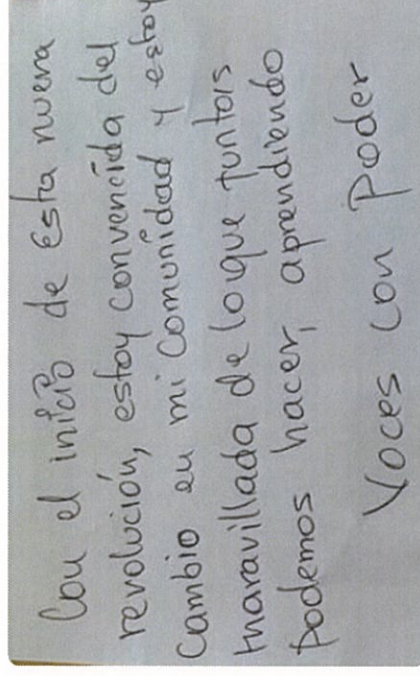 Con el inicio de Esta nueva
revolución, estoy convencida del
Cambio en mi Comunidad y estoy
maravillada de loque juntais
podemos hacer, aprendiendo
Voces con Poder